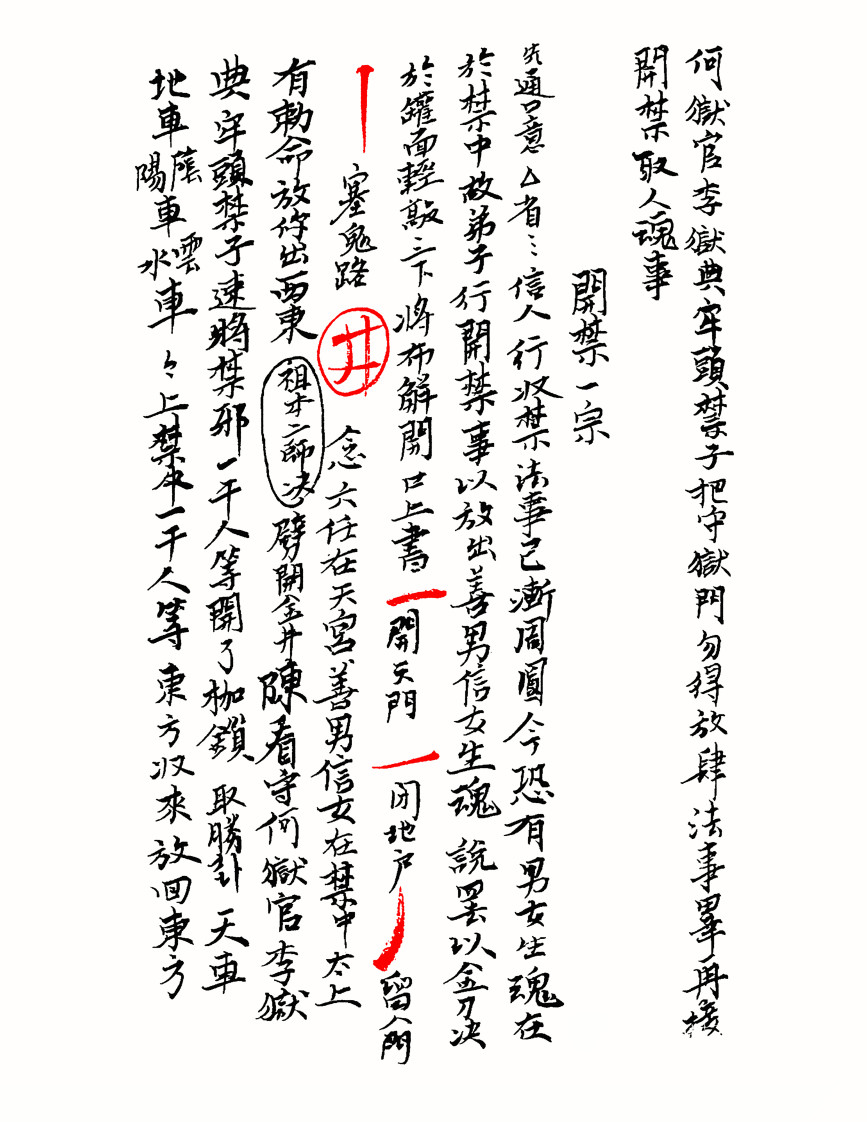 何獄官李獄典牢頭禁子把守獄門勿得放肆法事畢再接
開禁取人魂事
開禁一宗
先通口意厶省〻信人行收禁法事已漸周圓今恐有男女生魂在
於禁中故弟子行開禁事以放出善男信女生魂說罢以金刀决
於罐面輕敲三下將布解開口上書一開天門一闭地户丿留人門
丨塞鬼路井念六任在天宮善男信女在禁中太上
有勅命放你出西東祖本二師决劈開金井陳看守何獄官李獄
典牢頭禁子速將禁邪一干人等開了枷鎖取勝卦天車
地車蔭陽車雲水車〻上禁牢一干人等東方収來放回東方